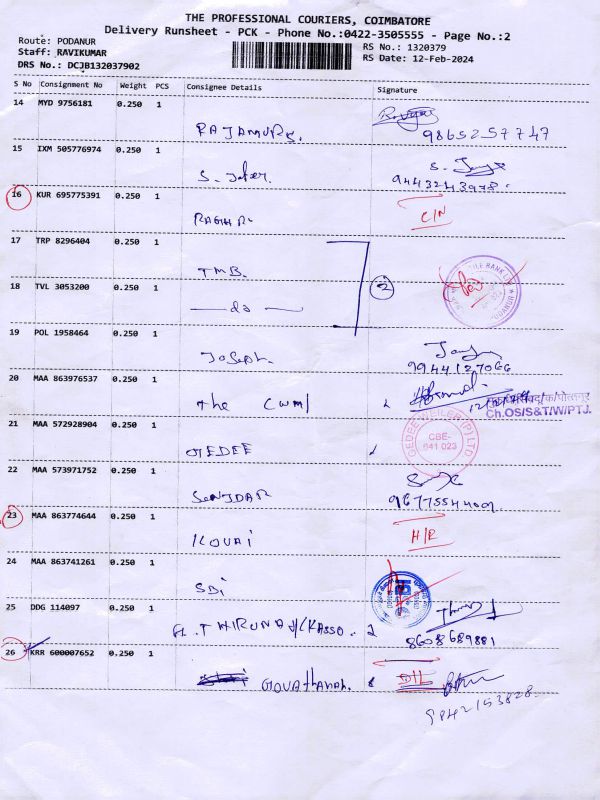 THE PROFESSIONAL COURIERS, COIMBATORE
Delivery Runsheet - PCK - Phone No.:0422-3505555 - Page No.:2
Route: PODANUR
RS No.: 1320379
Staff: RAVIKUMAR
RS Date: 12-Feb-2024
DRS No.: DCJB132037902
S No Consignment No Weight PCS Consignee Details Signature
14 MYD 9756181 0.250 1
RAJAMURG. 9865257747
15 IXM 505776974 0.250 1
S. Jafer. 9443243978.
16 KUR 695775391 0.250 1
C/N
17 TRP 8296404 0.250 1
TMB.
18 TVL 3053200 0.250 1
2
do
19 POL 1958464 0.250 1
Joseph. 9944127066
20 MAA 863976537 0.250 1
The CWM/
Ch.OS/S&T/W/PTJ.
21 MAA 572928904 0.250 1
GEDEE
GEDEE WEILER (P) LTD
CBE-
641 023
22 MAA 573971752 0.250 1
23 MAA 863774644 0.250 1
KOVAI H/R
24 MAA 863741261 0.250 1
SDI
25 DDG 114097 0.250 1
8608689881
26 KRR 600007652 0.250 1
9842153828.